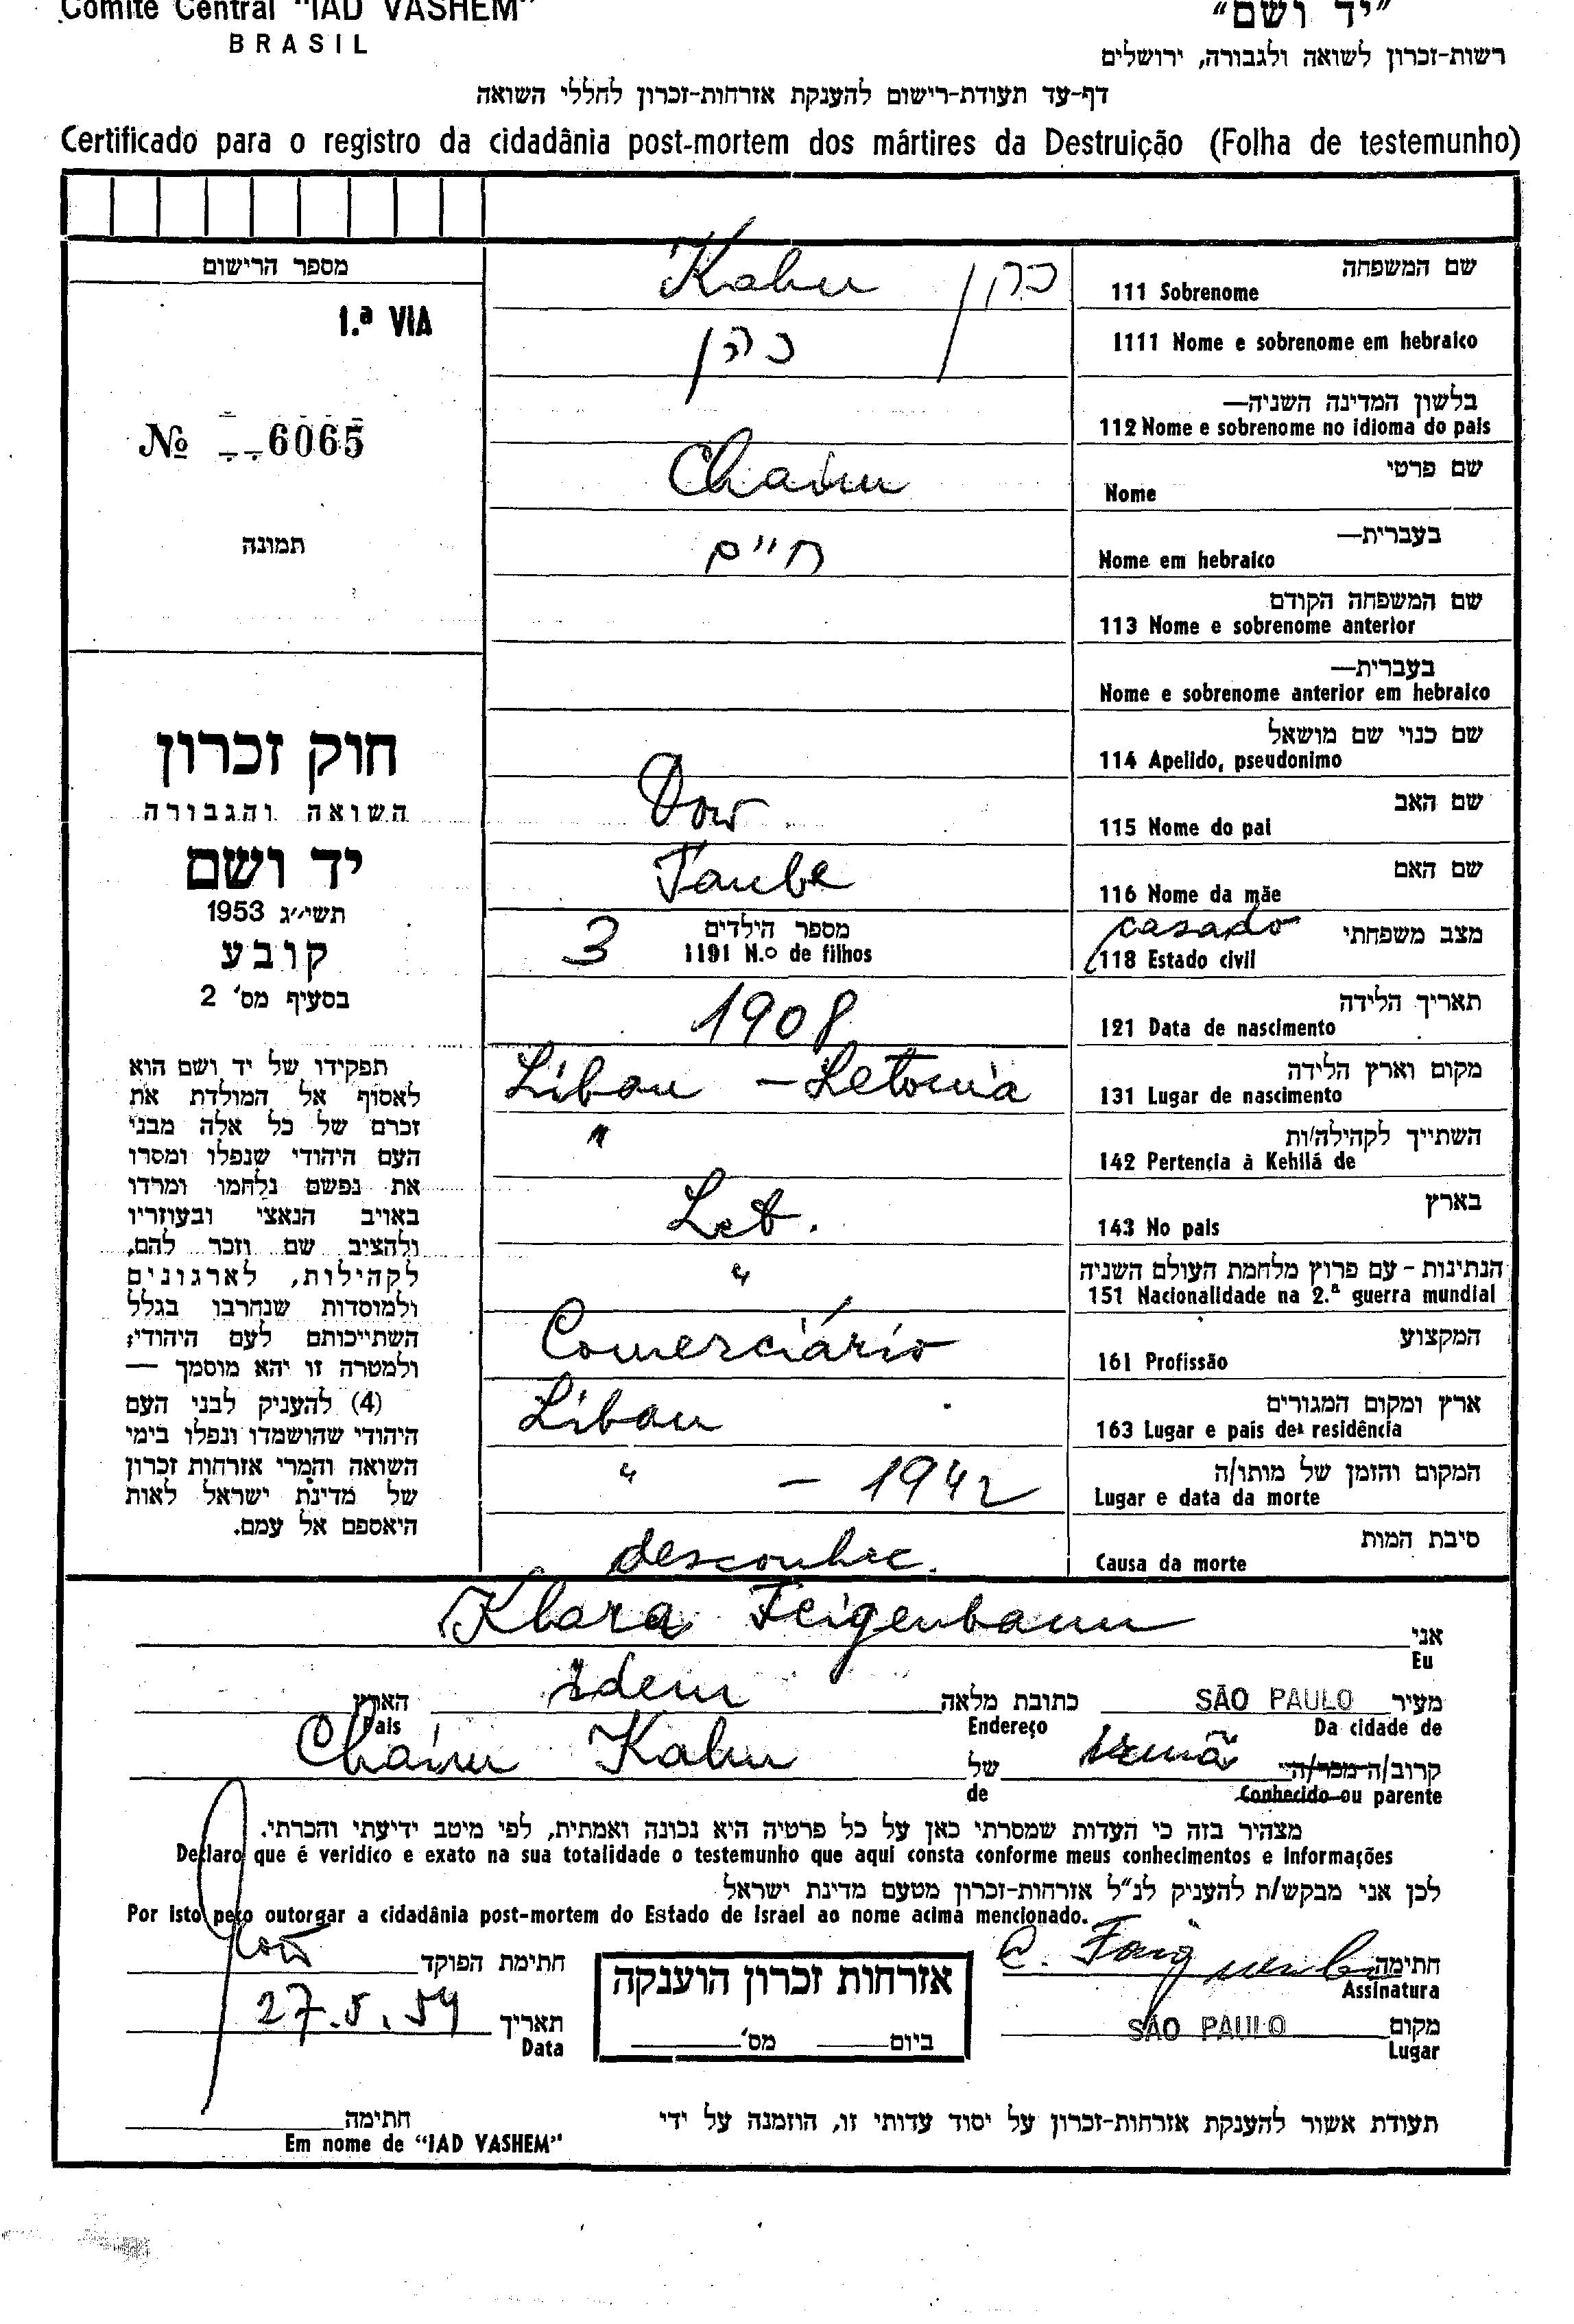 Comité Central "IAD VASHEM"
BRASIL
"יד ושם"
רשות-זכרון לשואה ולגבורה, ירושלים
דף-עד תעודת-רישום להענקת אזרחות-זכרון לחללי השואה
Certificado para o registro da cidadânia post-mortem dos mártires da Destruição (Folha de testemunho)
מספר הרישום
1.ª VIA
№ 6065
תמונה
חוק זכרון
השואה והגבורה
יד ושם
תשי״ג 1953
קובע
בסעיף מס' 2
תפקידו של יד ושם הוא
לאסוף אל המולדת את
זכרם של כל אלה מבני
העם היהודי שנפלו ומסרו
את נפשם נלחמו ומרדו
באויב הנאצי ובעוזריו
ולהציב שם וזכר להם,
לקהילות, לארגונים
ולמוסדות שנחרבו בגלל
השתייכותם לעם היהודי;
ולמטרה זו יהא מוסמך —
(4) להעניק לבני העם
היהודי שהושמדו ונפלו בימי
השואה והמרי אזרחות זכרון
של מדינת ישראל לאות
היאספם אל עמם.
שם המשפחה
111 Sobrenome Kahn כהן
1111 Nome e sobrenome em hebraico כהן
בלשון המדינה השניה—
112 Nome e sobrenome no idioma do pais
שם פרטי
Nome Chaim
בעברית—
Nome em hebraico חיים
שם המשפחה הקודם
113 Nome e sobrenome anterior
בעברית—
Nome e sobrenome anterior em hebraico
שם כנוי שם מושאל
114 Apelido, pseudonimo
שם האב
115 Nome do pai Dow
שם האם
116 Nome da mãe Taube
מצב משפחתי casado
118 Estado civil
מספר הילדים
1191 N.º de filhos 3
תאריך הלידה
121 Data de nascimento 1908
מקום וארץ הלידה
131 Lugar de nascimento Libau - Letonia
השתייך לקהילה/ות
142 Pertencia à Kehilá de "
בארץ
143 No pais Let.
הנתינות - עם פרוץ מלחמת העולם השניה
151 Nacionalidade na 2.ª guerra mundial "
המקצוע
161 Profissão Comerciário
ארץ ומקום המגורים
163 Lugar e pais de residência Libau
המקום והזמן של מותו/ה
Lugar e data da morte " - 1942
סיבת המות
Causa da morte desconhec.
אני Klara Feigenbaum
Eu
מעיר SÃO PAULO כתובת מלאה idem הארץ
Da cidade de Endereço Pais
קרוב/ה מכר/ה irmã של Chaim Kahn
Conhecido ou parente de
מצהיר בזה כי העדות שמסרתי כאן על כל פרטיה היא נכונה ואמתית, לפי מיטב ידיעתי והכרתי.
Declaro que é veridico e exato na sua totalidade o testemunho que aqui consta conforme meus conhecimentos e informações
לכן אני מבקש/ת להעניק לנ"ל אזרחות-זכרון מטעם מדינת ישראל
Por isto peço outorgar a cidadânia post-mortem do Estado de Israel ao nome acima mencionado.
חתימה חתימת הפוקד
Assinatura
אזרחות זכרון הוענקה
ביום מס'
מקום SÃO PAULO
Lugar
תאריך 27.5.54
Data
תעודת אשור להענקת אזרחות-זכרון על יסוד עדותי זו, הוזמנה על ידי חתימה
Em nome de "IAD VASHEM"